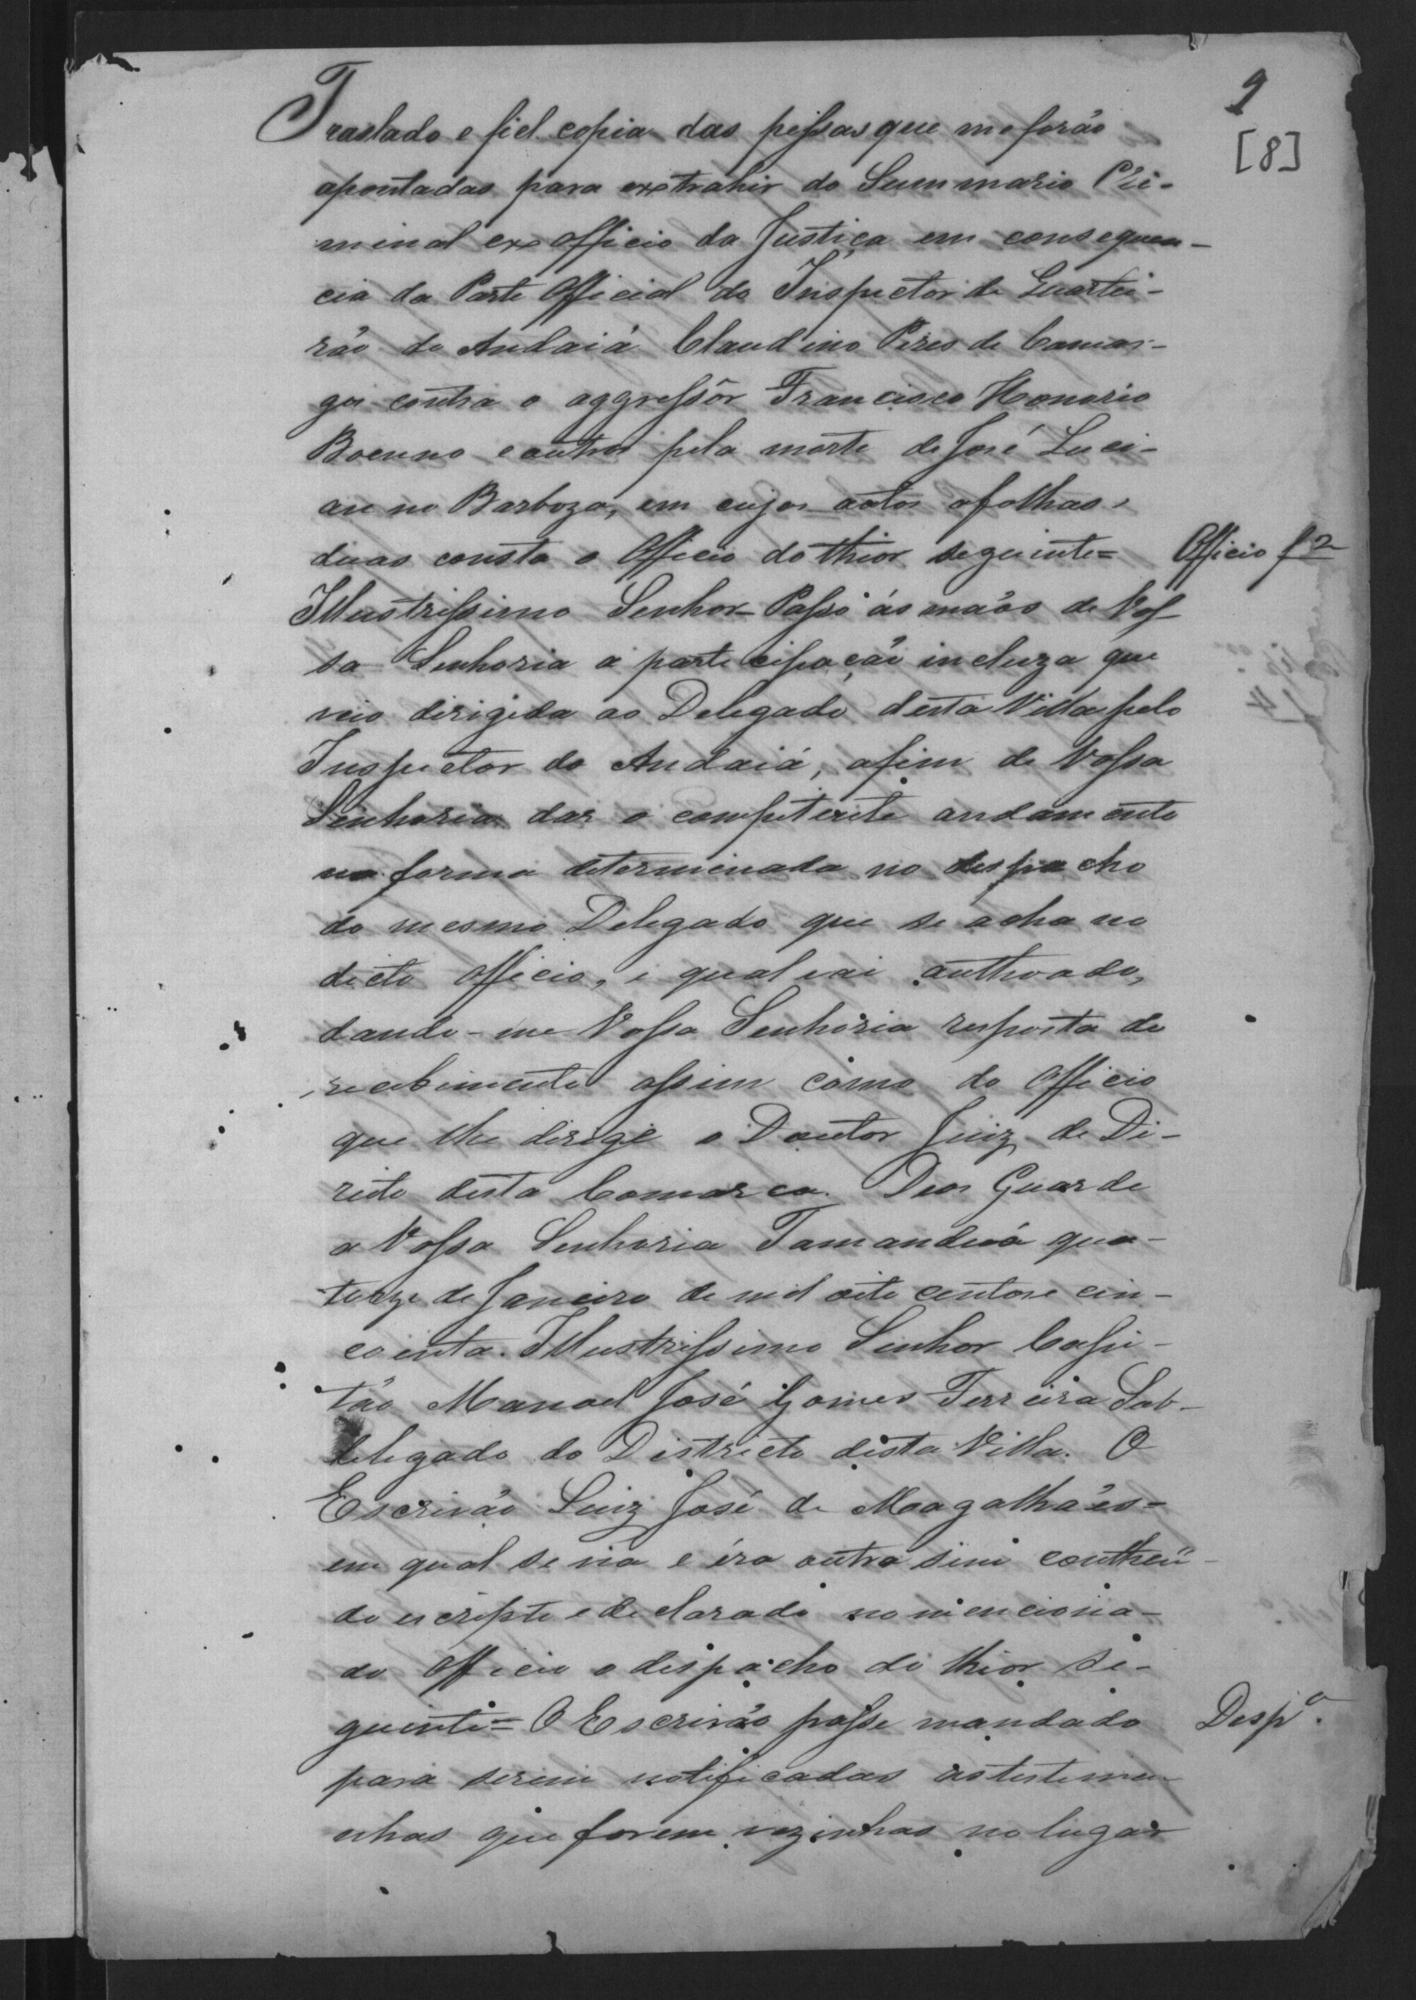 9
[8]
Traslado e fiel copia das pessas que me forão
apontadas para extrahir do Summario Cri-
minal ex officio da Justiça em consequen-
cia da Parte Official do Inspector de Quartei-
rão do Andaiá Claudino Pires de Camar-
go contra o aggressôr Francisco Honorio
Boeuno e outros pela morte de José Luci-
anno Barboza, em cujos autos a folhas
duas consta o Officio do thior seguinte=
Officio f 2
Illustrissimo Senhor - Passo ás mãos de Vos-
sa Senhoria a partecipação incluza que
veio dirigida ao Delegado desta Villa pelo
Inspector do Andaiá, afim de Vossa
Senhoria dar o competente andamento
na forma determinada no despacho
do mesmo Delegado que se acha no
dicto officio, i qual vai authoado,
dando-me Vossa Senhoria resposta do
recebimento assim como do Officio
que lhe dirige o Doutor Juiz de Di-
reito desta Comarca. Deos Guarde
a Vossa Senhoria Tamanduá qua-
torze de Janeiro de mil oito centos e cin-
coenta. Illustrissimo Senhor Capi-
tão Manoel José Gomes Ferreira Sub-
delegado do Districto desta Villa. O
Escrivão Luiz José de Magalhães=
em qual se via e éra outro sim contheu-
do escripto e declarado no menciona-
do Officio o despacho do thior se-
guinte= O Escrivão passe mandado
Desp.º
para serem notificadas as testemu-
nhas que forem vezinhas no lugar